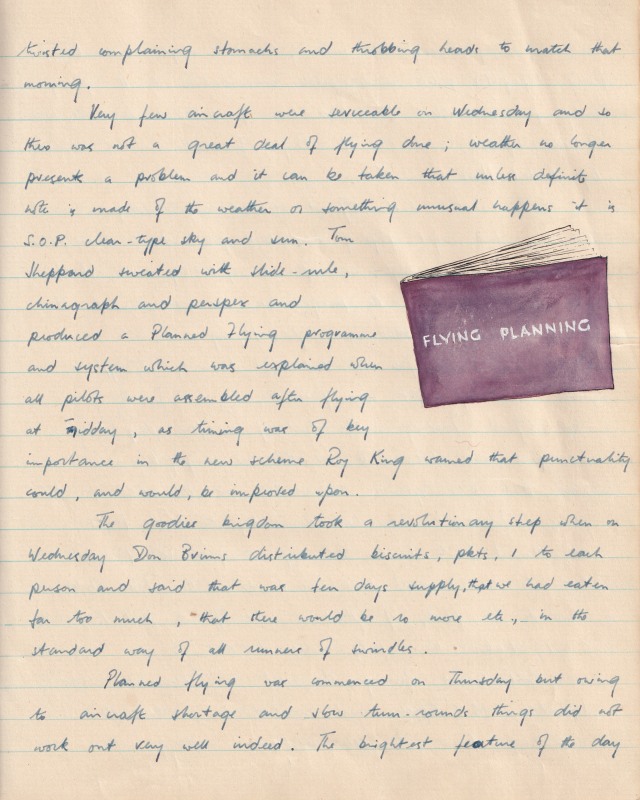 twisted complaining stomachs and throbbing heads to match that
morning.
Very few aircraft were serviceable on Wednesday and so
there was not a great deal of flying done ; weather no longer
presents a problem and it can be taken that unless definite
note is made of the weather or something unusual happens it is
S.O.P. clear-type sky and sun. Tom
Sheppard sweated with slide-rule,
chinagraph and perspex and
produced a Planned Flying programme
and system which was explained when
all pilots were assembled after flying
at midday, as timing was of key
importance in the new scheme Roy King warned that punctuality
could, and would, be improved upon.
FLYING PLANNING
The goodies kingdom took a revolutionary step when on
Wednesday Don Brims distributed biscuits, pkts, 1 to each
person and said that was ten days supply, that we had eaten
far too much, that there would be no more etc., in the
standard way of all runners of swindles.
Planned flying was commenced on Thursday but owing
to aircraft shortage and slow turn-rounds things did not
work out very well indeed. The brightest feature of the day